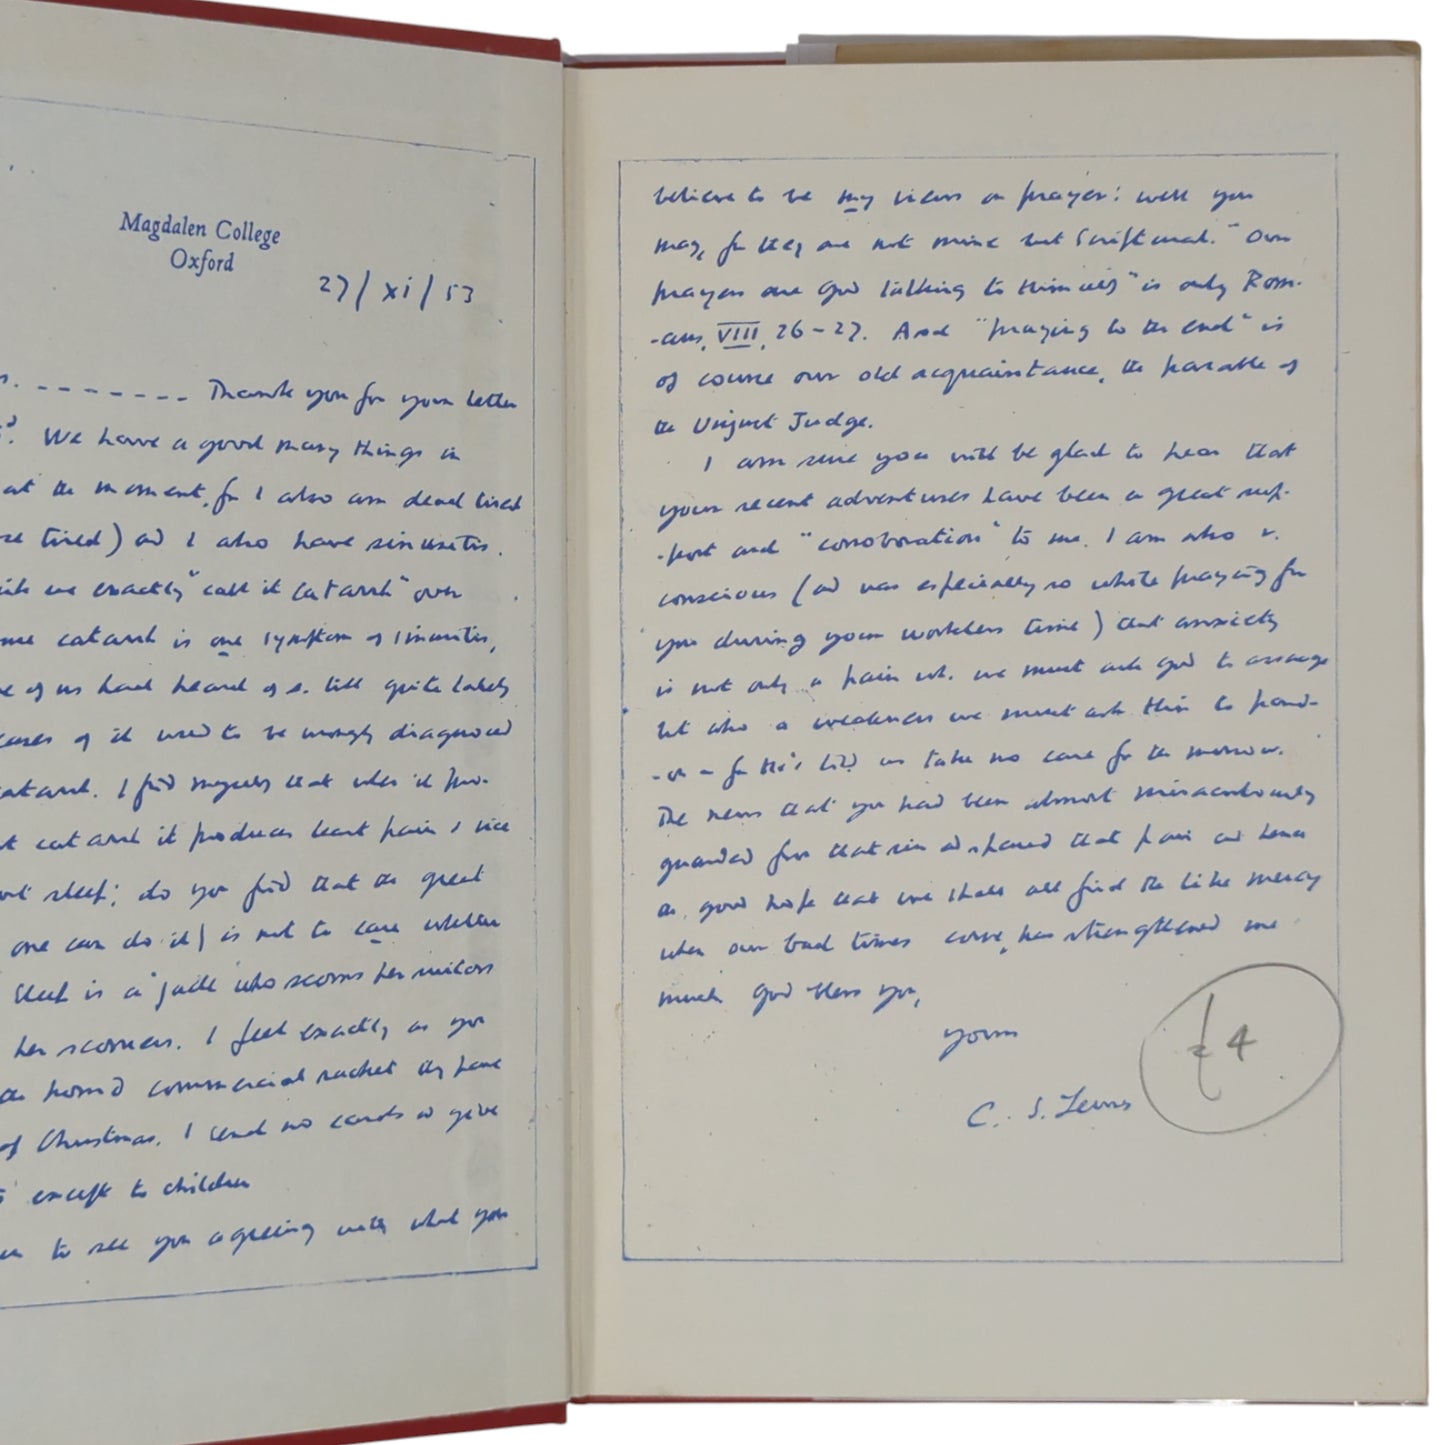 Magdalen College
Oxford
27/xi/53
s. - - - - - - - - Thank you for your letter
We have a good many things in
at the moment, for I also am dead tired
tired) and I also have sinusitis.
we exactly "call it catarrh" over
catarrh is one symptom of sinusitis,
of us had heard of s. till quite lately
cases of it used to be wrongly diagnosed
catarrh. I find myself that when it pro-
catarrh it produces least pain & vice
sleep; do you find that the great
one can do it) is not to care whether
Sleep is a jade who scorns her suitors
her scorners. I feel exactly as you
the horrid commercial racket they have
of Christmas. I send no cards and give
except to children
to see you agreeing with what you
believe to be my views on prayer: well you
may, for they are not mine but Scriptural. "Our
prayers are God talking to Himself" is only Rom-
-ans, VIII, 26–27. And "praying to the end" is
of course our old acquaintance, the parable of
the Unjust Judge.
I am sure you will be glad to hear that
your recent adventures have been a great sup-
-port and "corroboration" to me. I am also v.
conscious (and was especially so while praying for
you during your workless time) that anxiety
is not only a pain wh. we must ask God to assuage
but also a weakness we must ask Him to pard-
-on – for He's told us take no care for the morrow.
The news that you had been almost miraculously
guarded from that sin and spared that pain and hence
the good hope that we shall all find the like mercy
when our bad times come, has strengthened me
much. God bless you,
Yours
C. S. Lewis
£4